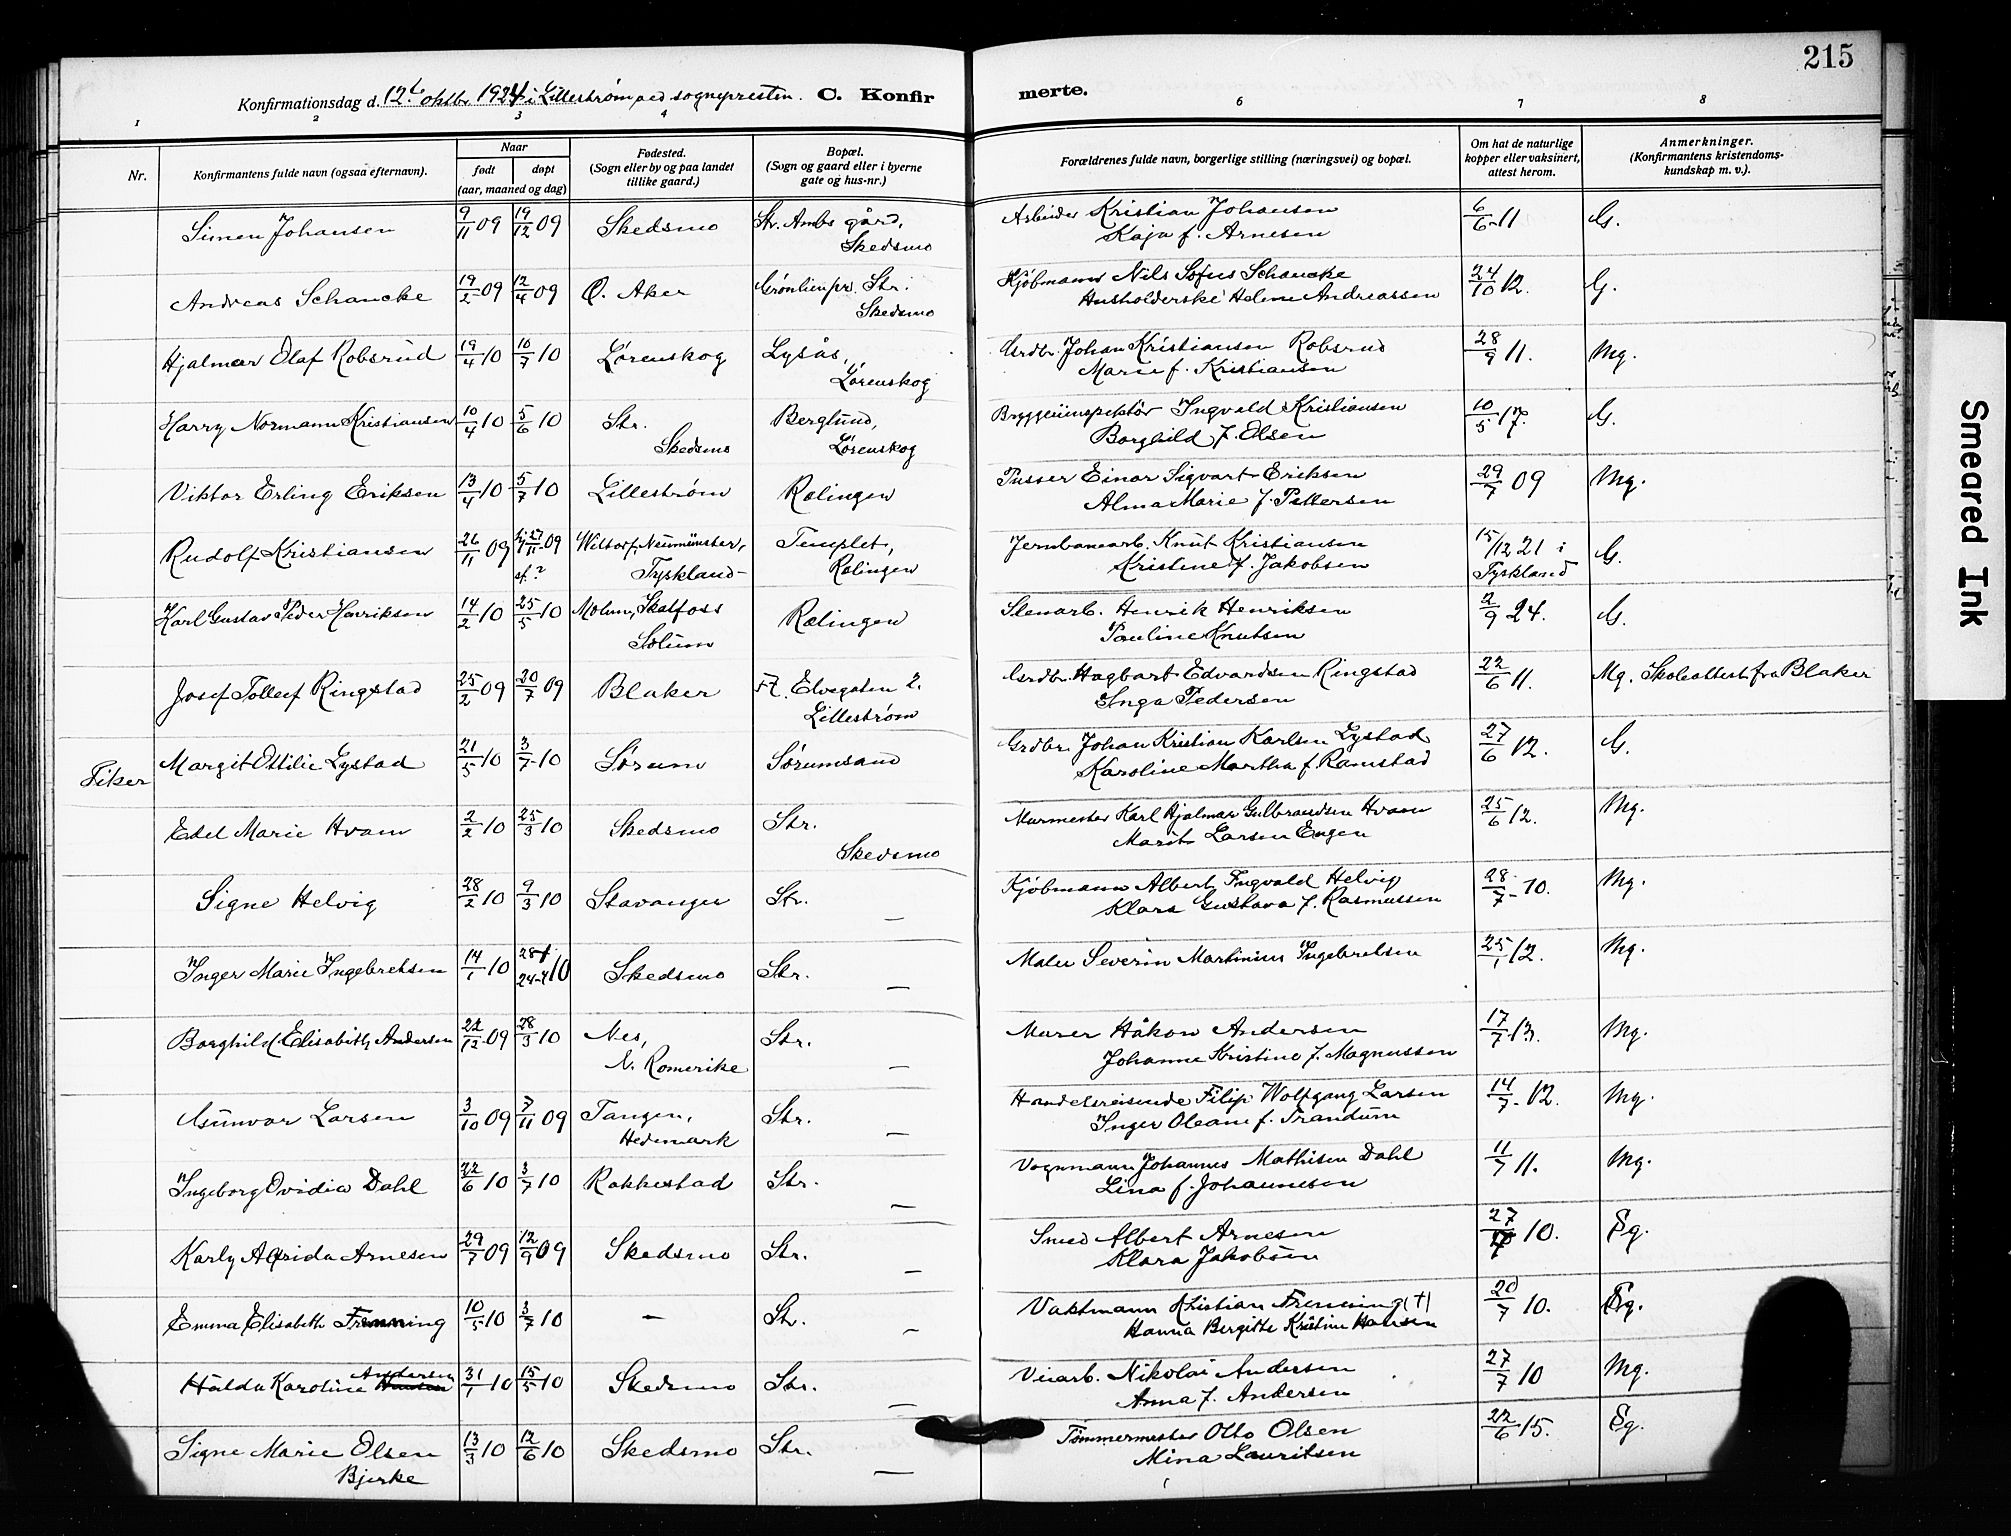 215
Konfirmationsdag d. 12te oktbr 1924 i Lillestrøm, ved sognepresten. C. Konfirmerte.
1 2 3 4 6 7 8
Nr. Konfirmantens fulde navn (ogsaa efternavn). Naar født døpt (aar, maaned og dag) Fødested. (Sogn eller by og paa landet tillike gaard.) Bopæl. (Sogn og gaard eller i byerne gate og hus-nr.) Forældrenes fulde navn, borgerlige stilling (næringsvei) og bopæl. Om hat de naturlige kopper eller vaksinert, attest herom. Anmerkninger. (Konfirmantens kristendoms-kundskap m. v.).
Simen Johansen 9/11 09 19/12 09 Skedsmo Str. Ambs gård, Skedsmo Arbeider Kristian Johansen Kaja f. Arnesen 6/6-11 G.
Andreas Schancke 19/2 09 12/4 09 Ø. Aker Grønlien pr. Str. Skedsmo Kjøbmann Nils Sofus Schancke Husholderske Helene Andreassen 24/10 12. G.
Hjalmar Olaf Robsrud 19/4 10 10/7 10 Lørenskog Lysås, Lørenskog Grdbr. Johan Kristiansen Robsrud Marie f. Kristiansen 28/9 11. Mg.
Harry Normann Kristiansen 10/4 10 5/6 10 Str. Skedsmo Berglund, Lørenskog Bryggeriinspektør Ingvald Kristiansen Borghild f. Olsen 10/5 17. G.
Viktor Erling Eriksen 13/4 10 5/7 10 Lillestrøm Rælingen Pusser Einar Sigvart Eriksen Alma Marie f. Pettersen 29/7 09 Mg.
Rudolf Kristiansen 26/11 09 27/11 09 st.? Wittorf, Neumünster, Tyskland Templet, Rælingen Jernbanearb. Knut Kristiansen Kristine f. Jakobsen 15/12 21 i Tyskland G.
Karl Gustav Peder Henriksen 14/2 10 25/5 10 Skotfoss Solum Rælingen Stenarb. Henrik Henriksen Pauline Knutsen 2/9 24. G.
Josef Tollef Ringstad 25/2 09 20/7 09 Blaker Elvegaten 2. Lillestrøm Grdbr. Hagbart Edvardsen Ringstad Inga Pedersen 22/6 11. Mg. Skoleattest fra Blaker
Piker Margit Ottilie Lystad 21/5 10 3/7 10 Sørum Sørumsand Grdbr. Johan Kristian Karlsen Lystad Karoline Martha f. Ramstad 27/6 12. G.
Edel Marie Hvam 2/2 10 25/3 10 Skedsmo Str. Skedsmo Murmester Karl Hjalmar Gulbrandsen Hvam Marit Larsen Engen 25/6 12. Mg.
Signe Helvig 28/2 10 9/3 10 Stavanger Str. — Kjøbmann Albert Ingvald Helvig Klara Gustava f. Rasmussen 28/7-10. Mg.
Inger Marie Ingebretsen 14/1 10 28/ 24-4 10 Skedsmo Str. — Maler Severin Martinius Ingebretsen 25/1 12. Mg.
Borghild Elisabith Andersen 22/12 09 28/3 10 Nes, N. Romerike Str. — Murer Håkon Andersen Johanne Kristine f. Magnussen 17/7 13. Mg.
Gunvor Larsen 3/10 09 7/11 09 Tangen, Hedemark Str. — Handelsreisende Filip Wolfgang Larsen Inger Oleane f. Trandum 14/7-12. Mg.
Ingeborg Ovidia Dahl 22/6 10 3/7 10 Rakkestad Str. — Vognmann Johannes Mathisen Dahl Lina f. Johannesen 11/7 11. Mg.
Karly Alfrida Arnesen 29/7 09 12/9 09 Skedsmo Str. — Smed Albert Arnesen Klara Jakobsen 27/7 10. Sg.
Emma Elisabeth Fremming 10/5 10 3/7 10 — Str. — Vaktmann Kristian Fremming (†) Hanna Bergitte Kristine Hansen 20/7 10. Sg.
Hulda Karoline Hansen Andersen 31/1 10 15/5 10 Skedsmo Str. — Veiarb. Nikolai Andersen Anna f. Andersen 27/7 10 Mg.
Signe Marie Olsen Bjerke 13/3 10 12/6 10 Skedsmo Str. — Tømmermester Otto Olsen Mina Lauritsen 22/6 15. Sg.
Smeared Ink